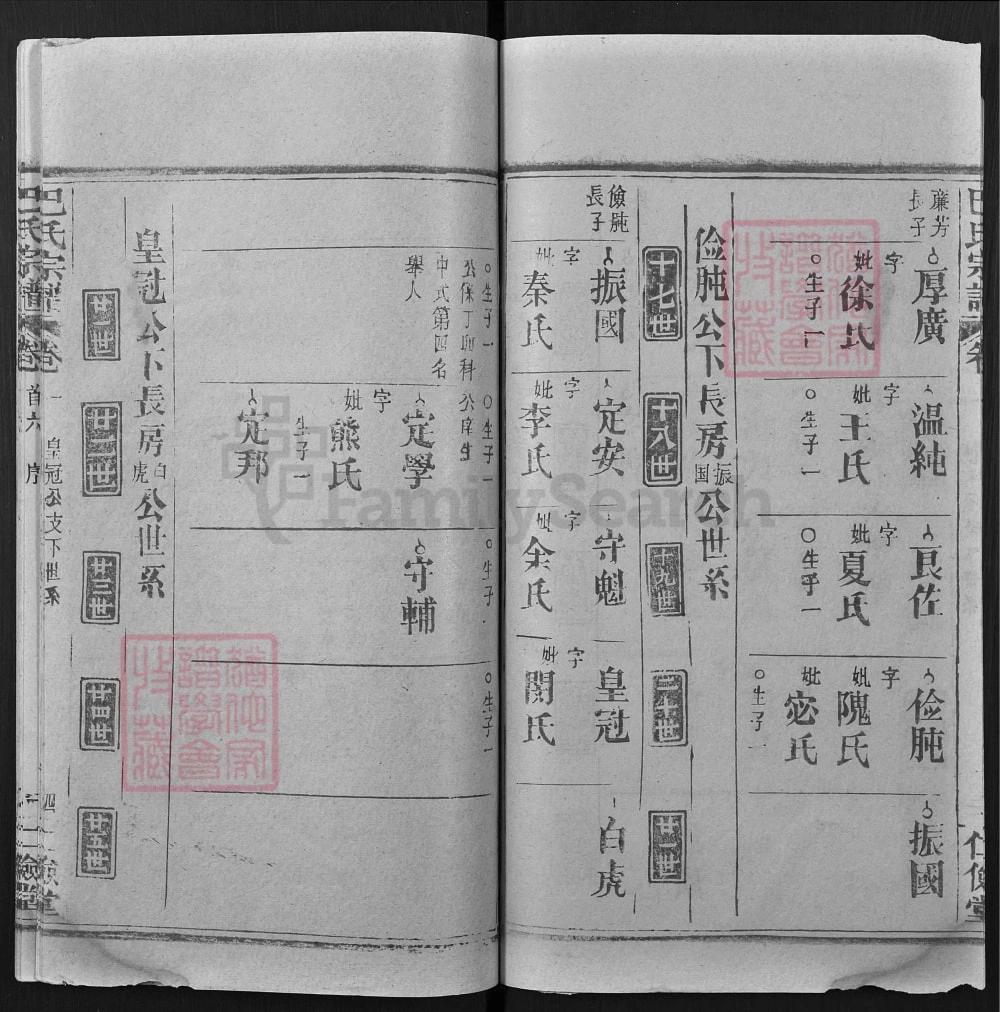 巴氏宗譜 卷
仁儉堂
廉芳長子
厚廣
字
妣徐氏
生子一
温純
字
妣王氏
生子一
良佐
字
妣夏氏
生子一
俭肫
字
妣隗氏
妣宓氏
生子一
振國
俭肫公下長房振国公世系
十七世
十八世
十九世
二十世
廿一世
儉肫長子
振國
字
妣秦氏
定安
字
妣李氏
守魁
字
妣余氏
皇冠
字
妣閔氏
白虎
生子一
公保丁卯科
中式第四名
舉人
生子一
公庠生
定學
字
妣熊氏
生子一
定邦
生子
守輔
生子一
皇冠公下長房白虎公世系
廿一世
廿二世
廿三世
廿四世
廿五世
巴氏宗譜 卷
皇冠公支下世系
四
儉堂
巴氏宗譜 卷
首六
序
儉堂
FamilySearch